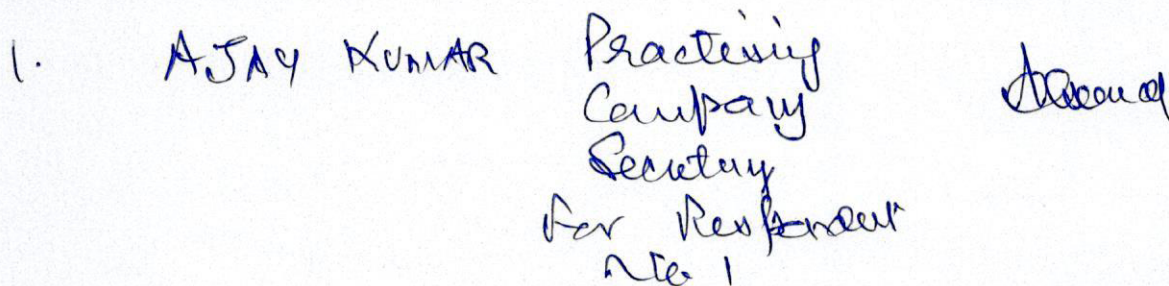 1. AJAY KUMAR Practising
Company
Secretary
for Respondent
No. 1